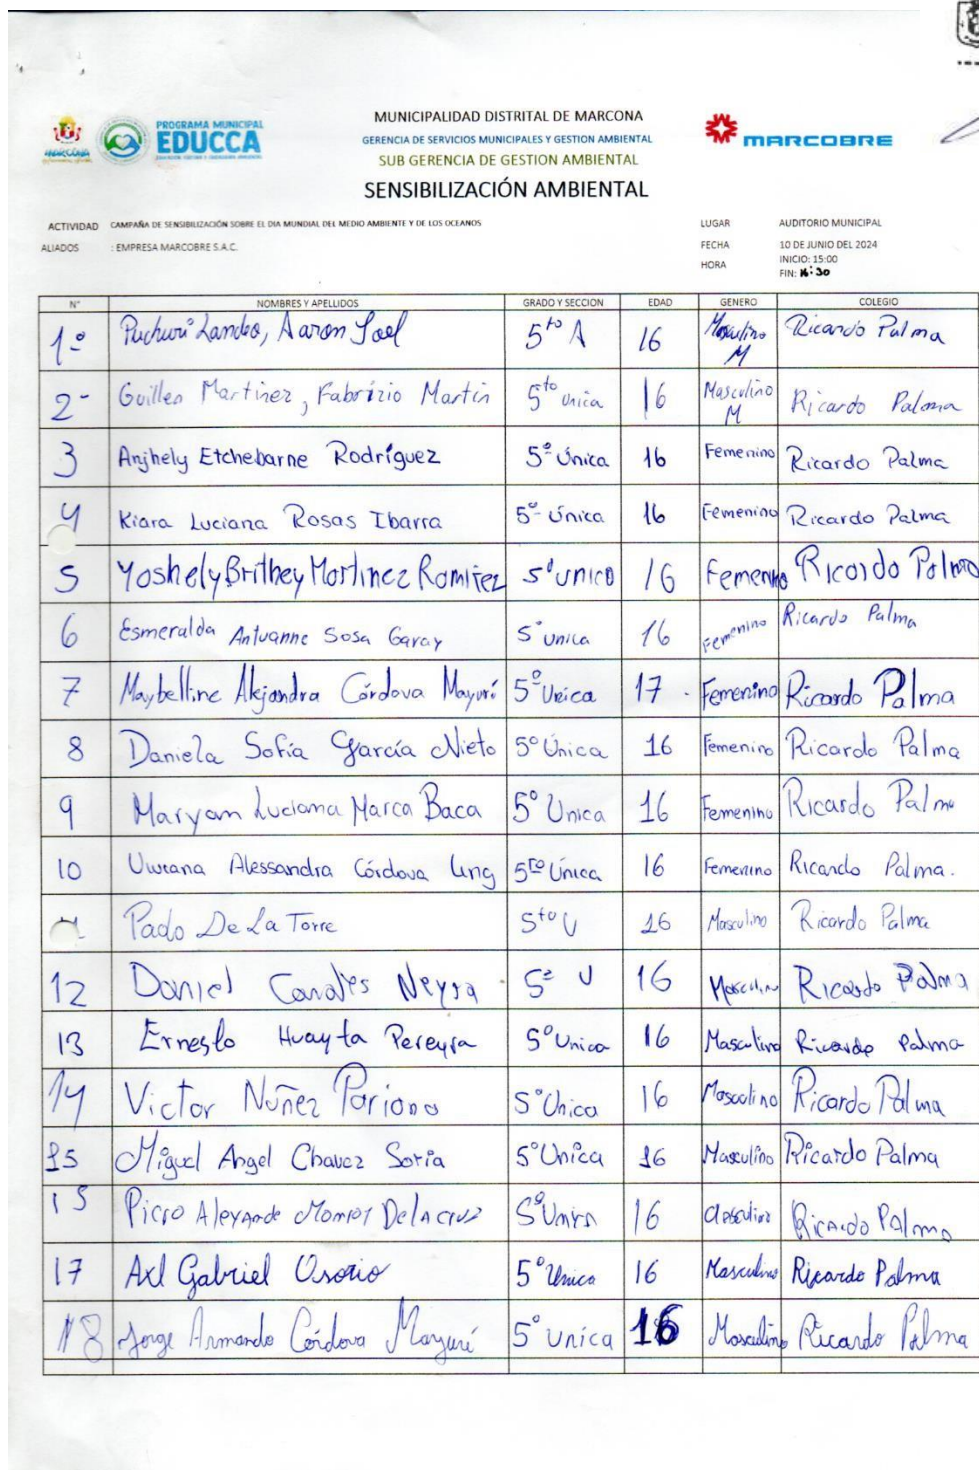 MARCONA
PROGRAMA MUNICIPAL
EDUCCA
MUNICIPALIDAD DISTRITAL DE MARCONA
GERENCIA DE SERVICIOS MUNICIPALES Y GESTION AMBIENTAL
SUB GERENCIA DE GESTION AMBIENTAL
SENSIBILIZACIÓN AMBIENTAL
MARCOBRE
ACTIVIDAD CAMPAÑA DE SENSIBILIZACIÓN SOBRE EL DIA MUNDIAL DEL MEDIO AMBIENTE Y DE LOS OCEANOS LUGAR AUDITORIO MUNICIPAL
ALIADOS : EMPRESA MARCOBRE S.A.C. FECHA 10 DE JUNIO DEL 2024
HORA INICIO: 15:00
FIN: 16:30
N° NOMBRES Y APELLIDOS GRADO Y SECCION EDAD GENERO COLEGIO
1º Puchuri Landeo, Aaron Joel 5to A 16 Masculino M Ricardo Palma
2- Guillen Martinez, Fabrizio Martin 5to unica 16 Masculino M Ricardo Paloma
3 Anjhely Etchebarne Rodríguez 5º Única 16 Femenino Ricardo Palma
4 Kiara Luciana Rosas Ibarra 5º Única 16 Femenino Ricardo Palma
5 Yoshely Brithey Martinez Ramirez 5º unico 16 Femenino Ricardo Palma
6 Esmeralda Antuanne Sosa Garay 5º unica 16 Femenino Ricardo Palma
7 Maybelline Alejandra Córdova Mayurí 5º Unica 17 Femenino Ricardo Palma
8 Daniela Sofía García Nieto 5º Única 16 Femenino Ricardo Palma
9 Maryam Luciana Marca Baca 5º Unica 16 Femenino Ricardo Palma
10 Alessandra Córdova Ung 5to Única 16 Femenino Ricardo Palma.
De La Torre 5to U 16 Masculino Ricardo Palma
12 Daniel Canales Neyra 5º U 16 Masculino Ricardo Palma
13 Ernesto Huayta Pereyra 5º Unica 16 Masculino Ricardo Palma
14 Victor Nuñez Pariona 5º Unica 16 Masculino Ricardo Palma
15 Miguel Angel Chavez Soria 5º Unica 16 Masculino Ricardo Palma
15 De la cruz 5º 16 Masculino Ricardo Palma
17 Axl Gabriel Osorio 5º Unica 16 Masculino Ricardo Palma
18 Jorge Armando Córdova Mayurí 5º unica 16 Masculino Ricardo Palma